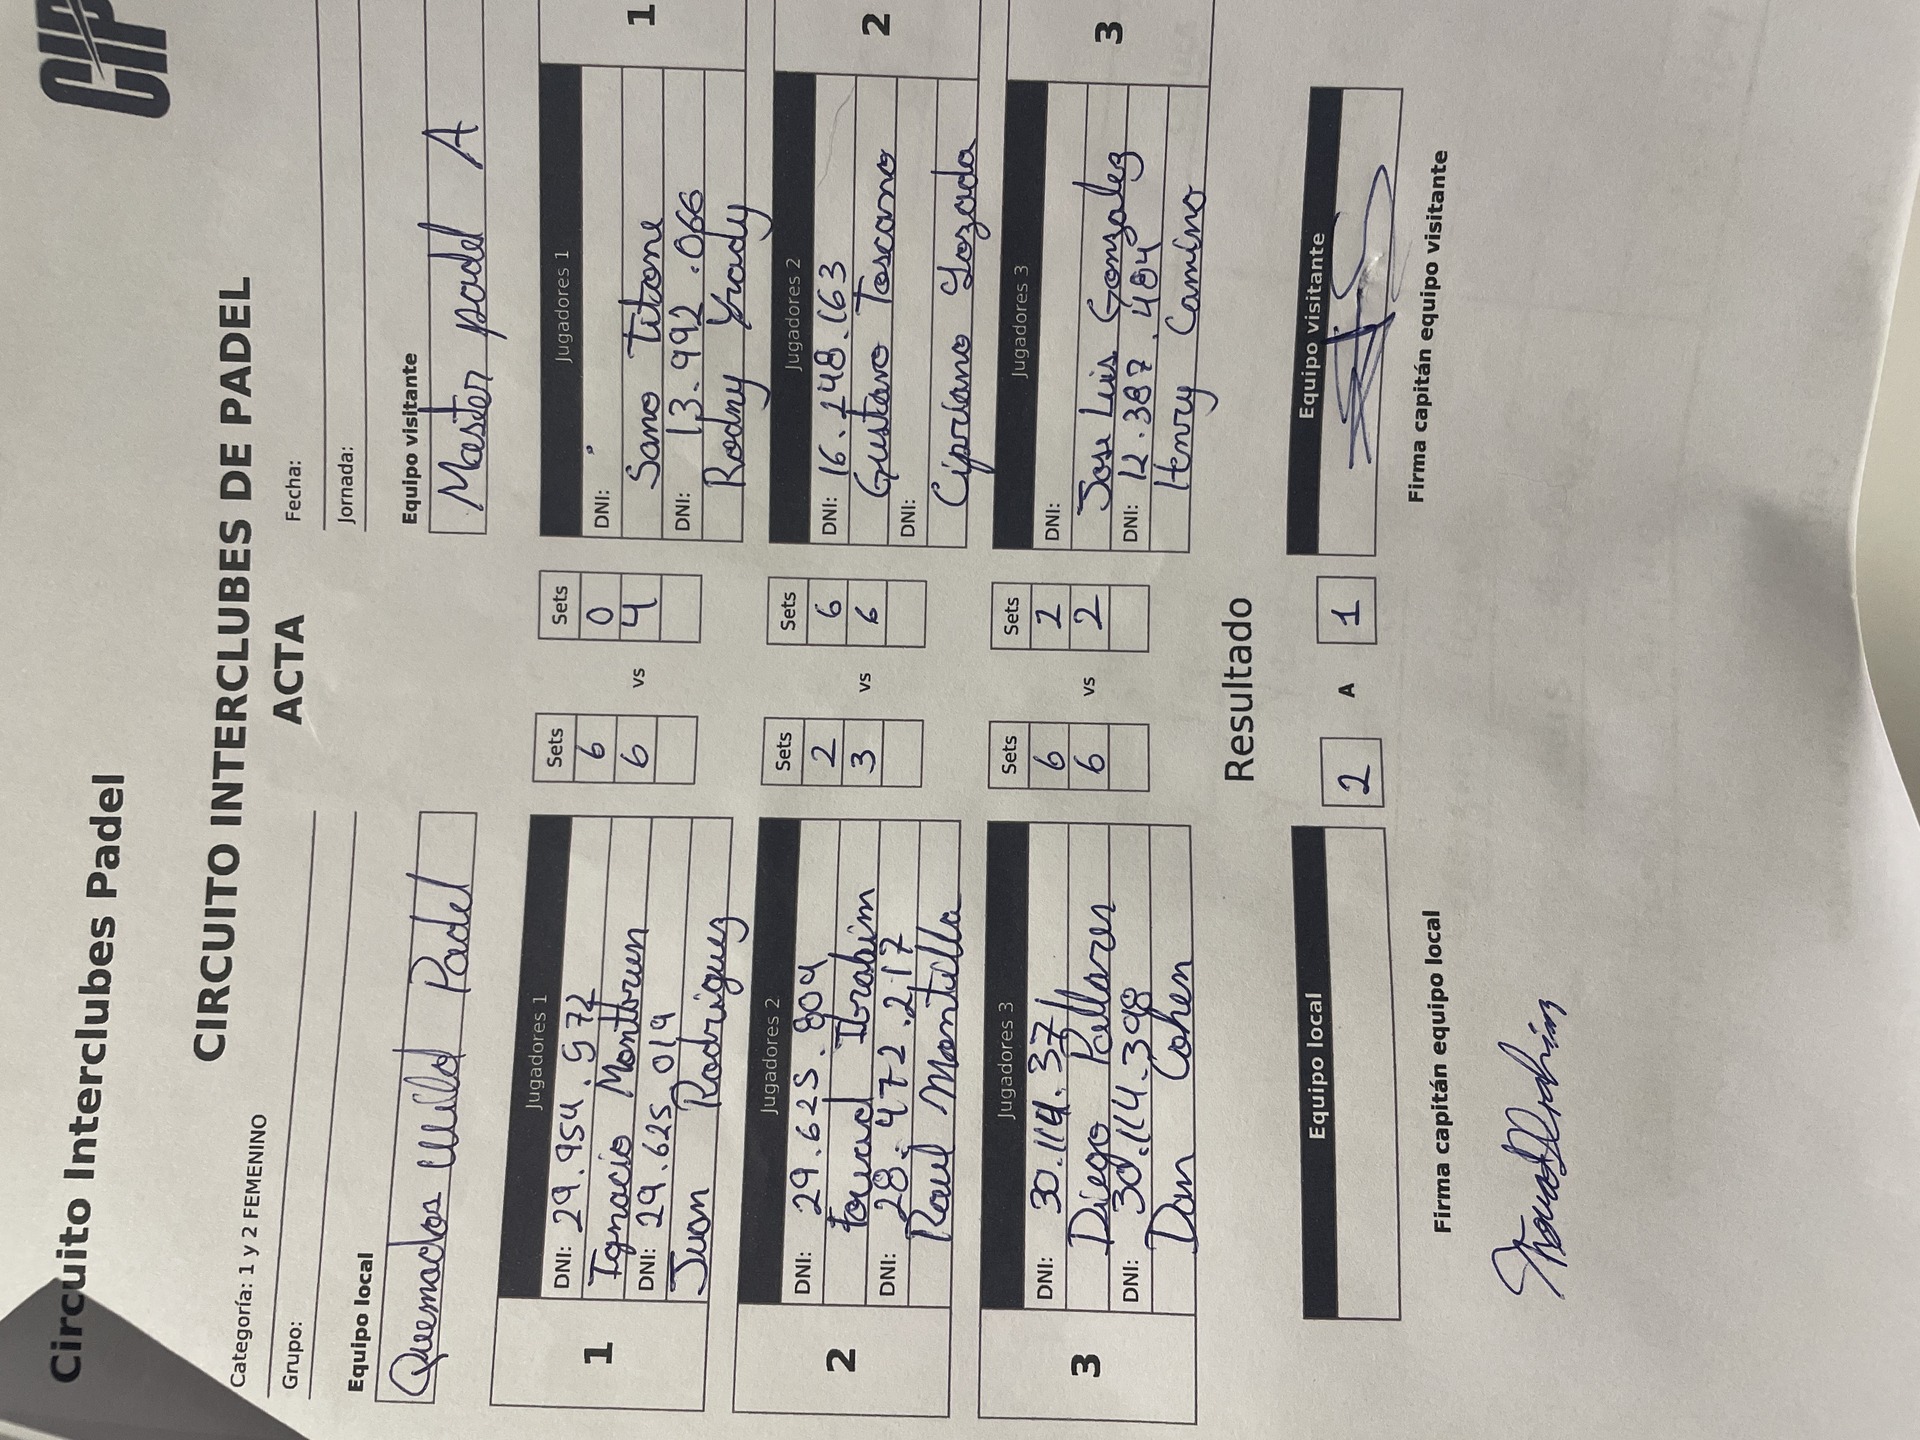 CIP
Circuito Interclubes Padel
CIRCUITO INTERCLUBES DE PADEL
ACTA
Categoría: 1 y 2 FEMENINO
Fecha:
Grupo:
Jornada:
Equipo local
Equipo visitante
Quemados Padel
Master padel A
1
Jugadores 1
DNI: 29.954.972
Ignacio Montbrun
DNI: 29.625.019
Juan Rodriguez
Sets
6
6
vs
Sets
0
4
Jugadores 1
DNI:
Sano Titone
DNI: 13.992.066
Rodney Yrady
1
2
Jugadores 2
DNI: 29.625.804
Fouad Ibrahim
DNI: 28.472.217
Raul Montilla
Sets
2
3
vs
Sets
6
6
Jugadores 2
DNI: 16.248.163
Gustavo Toscano
DNI:
Cipriano Lozada
2
3
Jugadores 3
DNI: 30.114.37
Diego Pallares
DNI: 30.114.398
Dan Cohen
Sets
6
6
vs
Sets
2
2
Jugadores 3
DNI:
Jose Luis Gonzalez
DNI: 12.387.484
Henry Camino
3
Resultado
Equipo local
2 A 1
Equipo visitante
Firma capitán equipo local
Firma capitán equipo visitante